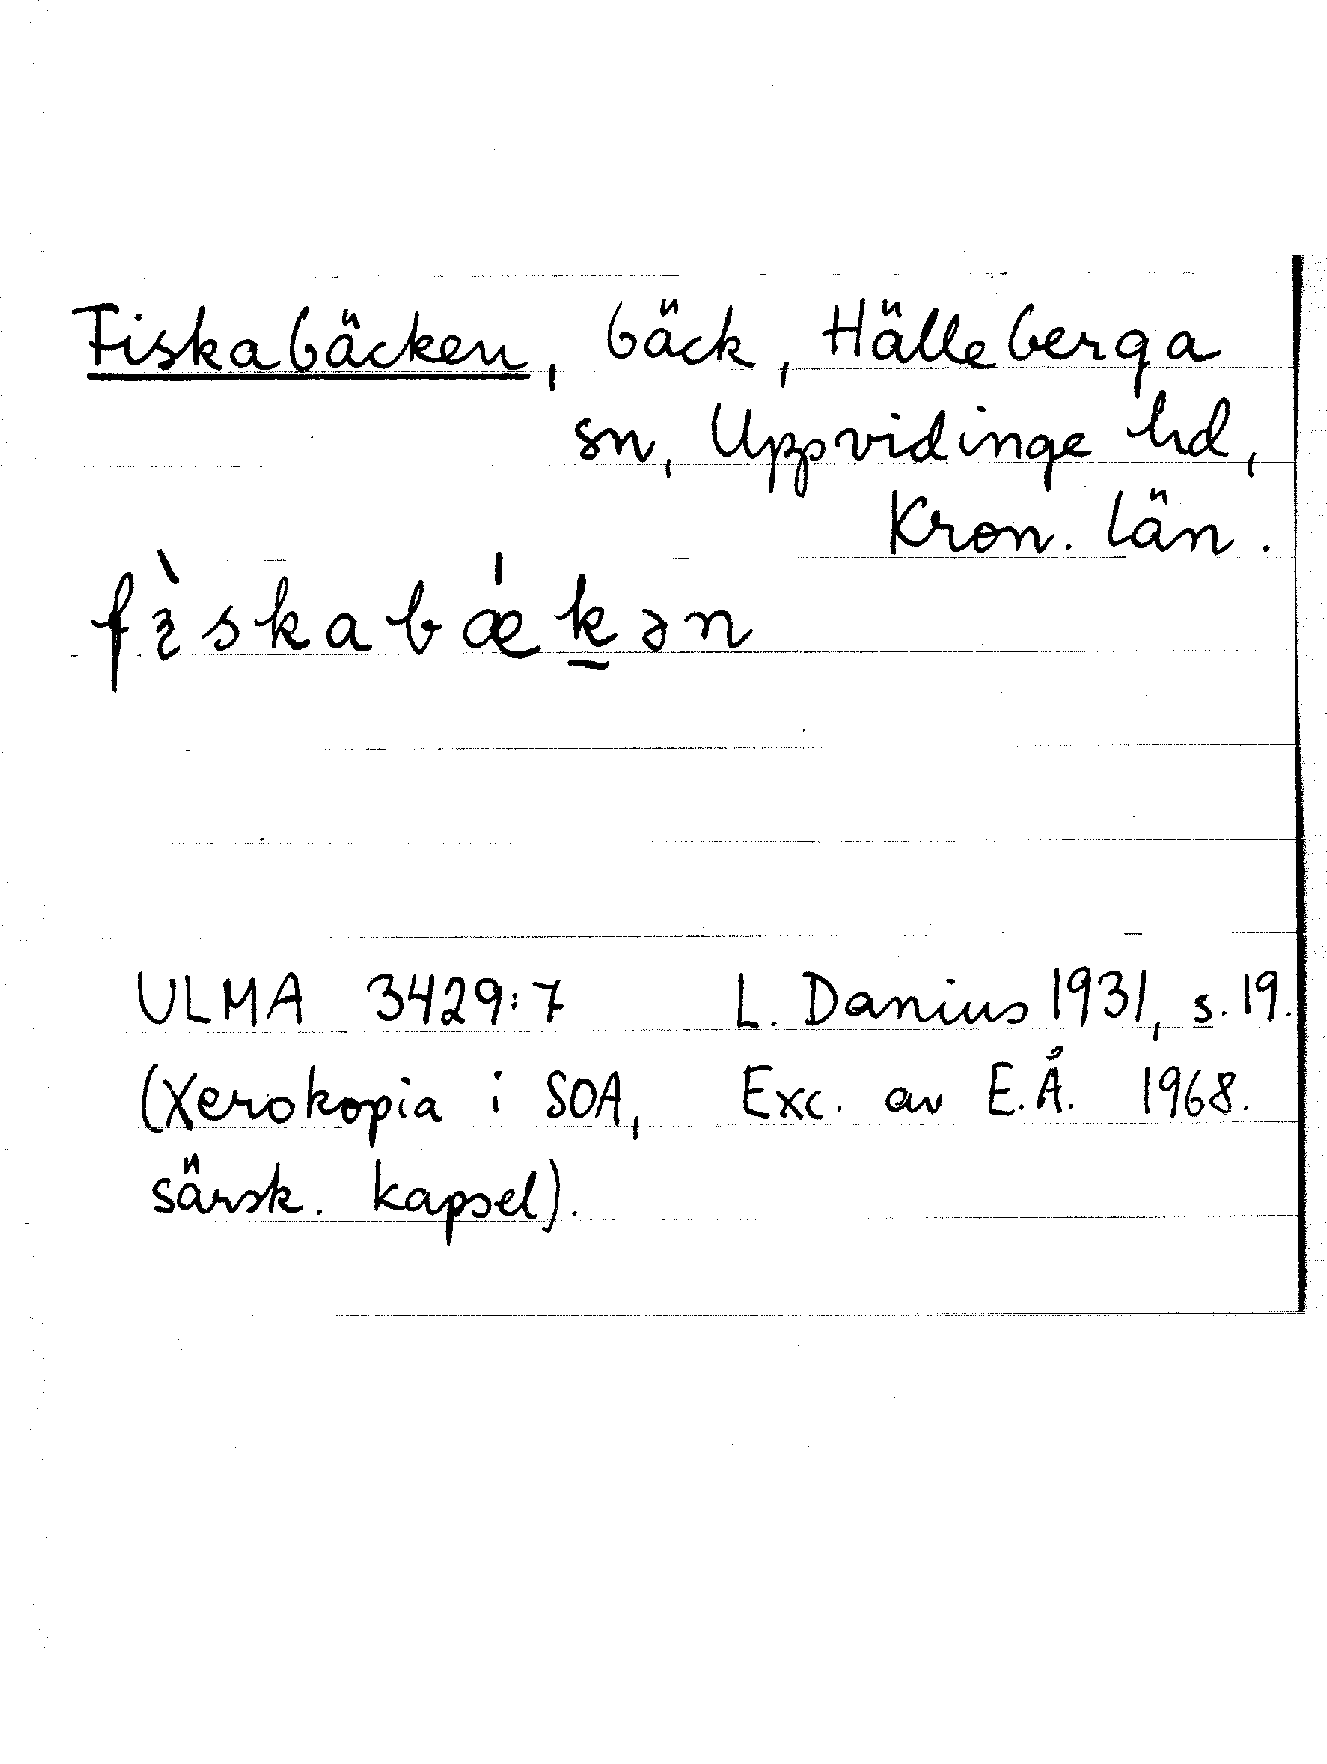 Fiskabäcken, bäck, Hälleberga
sn, Uppvidinge hd,
Kron. län.
fìskabǽk̲ən
ULMA 3429:7 L. Danius 1931, s. 19.
(Xerokopia i SOA, Exc. av E.Å. 1968.
särsk. kapsel).